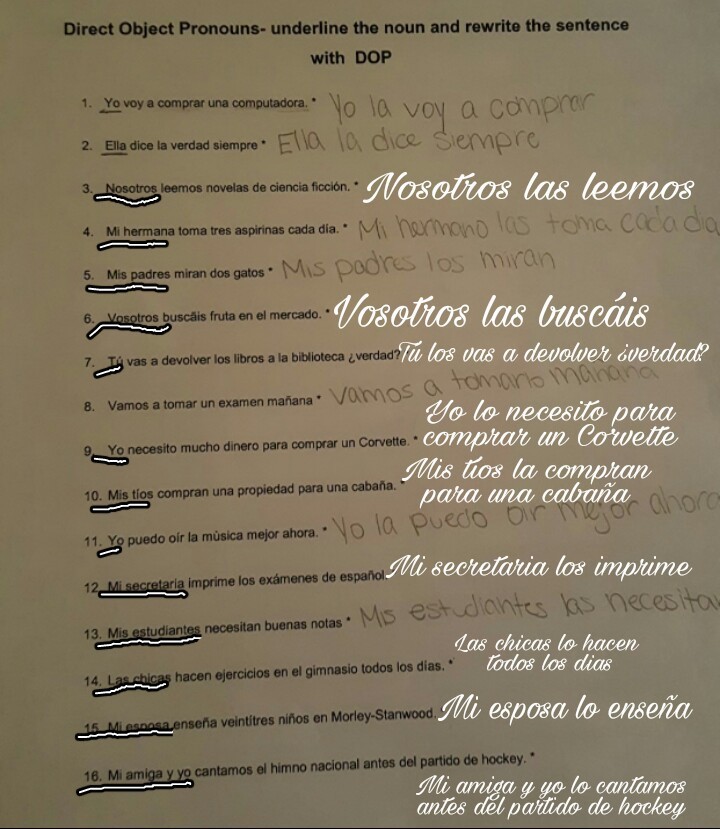 Direct Object Pronouns- underline the noun and rewrite the sentence
with DOP
1. Yo voy a comprar una computadora. * Yo la voy a comprar
2. Ella dice la verdad siempre * Ella la dice siempre
3. Nosotros leemos novelas de ciencia ficción. * Nosotros las leemos
4. Mi hermana toma tres aspirinas cada día. * Mi hermano las toma cada día
5. Mis padres miran dos gatos * Mis padres los miran
6. Vosotros buscáis fruta en el mercado. * Vosotros las buscáis
7. Tú vas a devolver los libros a la biblioteca ¿verdad? Tú los vas a devolver ¿verdad?
8. Vamos a tomar un examen mañana * Vamos a tomarlo mañana
Yo lo necesito para
9. Yo necesito mucho dinero para comprar un Corvette. * comprar un Corvette
Mis tíos la compran
10. Mis tíos compran una propiedad para una cabaña. * para una cabaña
11. Yo puedo oír la música mejor ahora. * Yo la puedo oír mejor ahora
12 Mi secretaria imprime los exámenes de español. Mi secretaria los imprime
13. Mis estudiantes necesitan buenas notas * Mis estudiantes las necesitan
Las chicas lo hacen
todos los dias
14. Las chicas hacen ejercicios en el gimnasio todos los días. *
15. Mi esposa enseña veintítres niños en Morley-Stanwood. Mi esposa lo enseña
16. Mi amiga y yo cantamos el himno nacional antes del partido de hockey. *
Mi amiga y yo lo cantamos
antes del partido de hockey